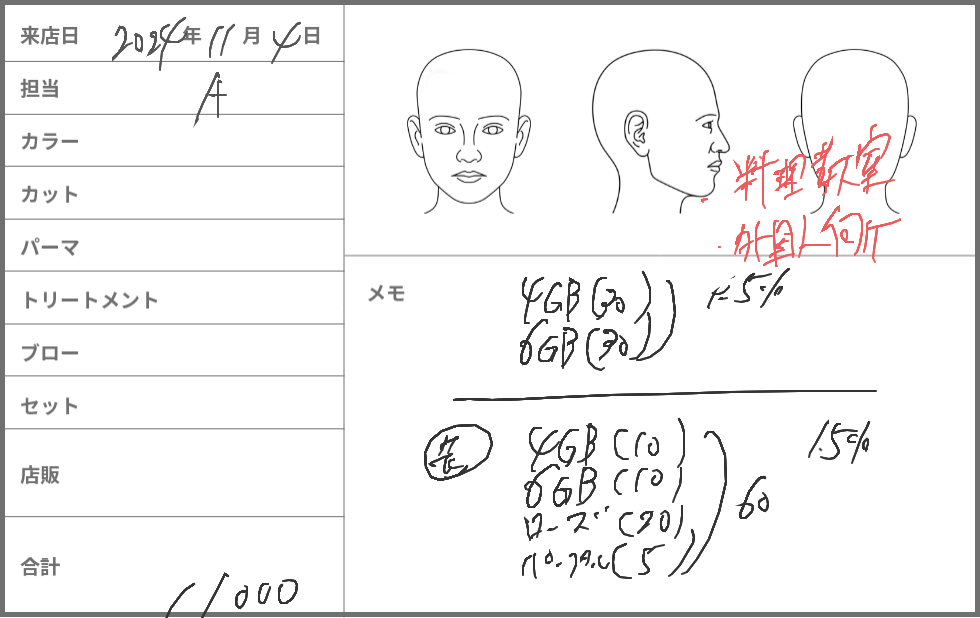 来店日 2024年 11月 4日
担当 A
カラー
カット
パーマ
トリートメント
ブロー
セット
店販
合計 11000
・料理教室
・外国人向け
メモ
4GB (30)
6GB (30)
4.5%
4GB (10)
6GB (10)
ローズ (20)
(5)
60
1.5%